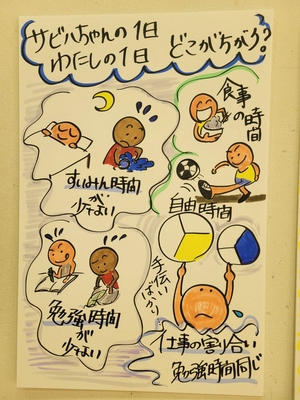 サビハちゃんの1日
わたしの1日
どこがちがう?
食事
の時間
すいみん時間
が
少ない
自由時間
手伝い
ばっかり
勉強時間
が
少ない
仕事の割り合い
勉強時間同じ